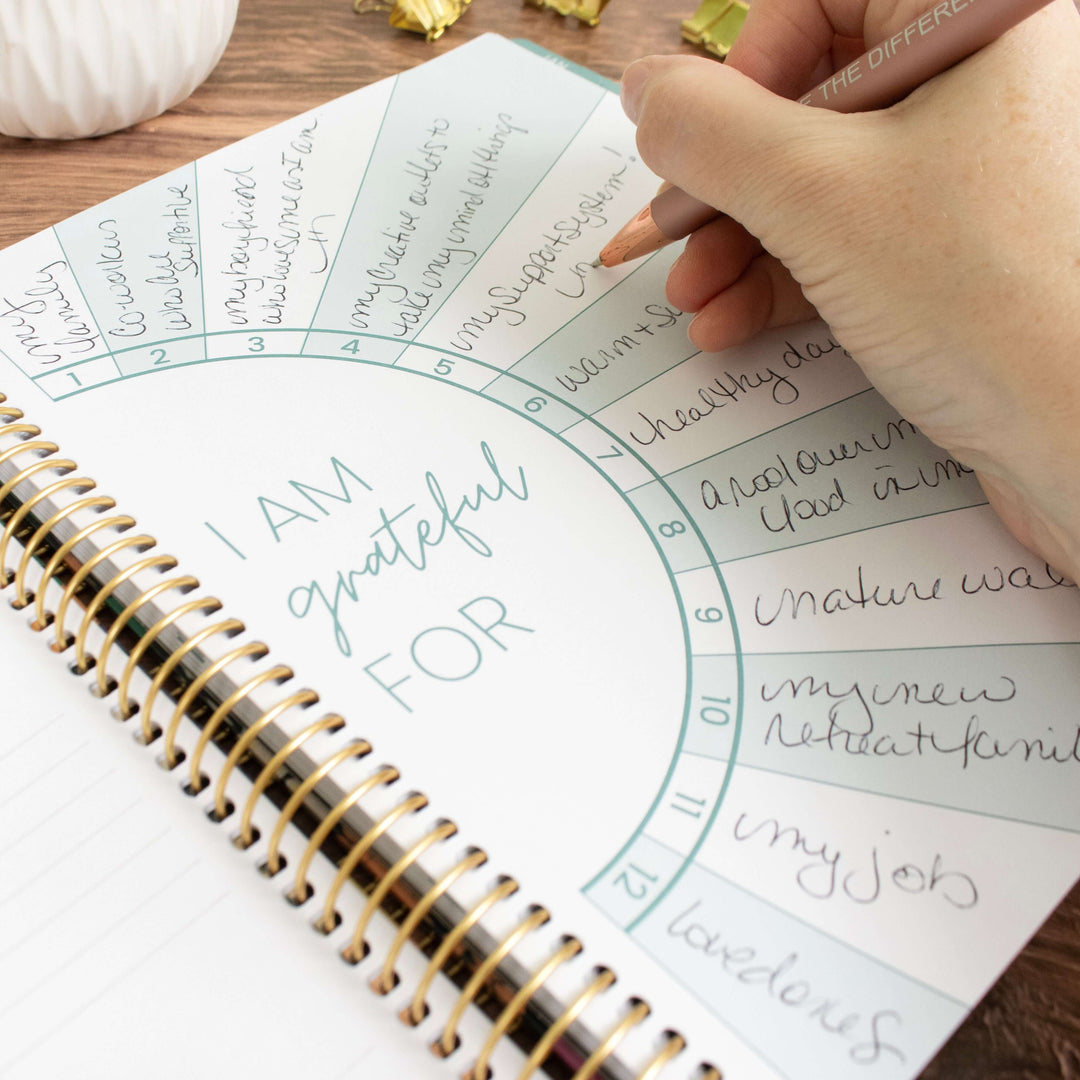 E THE DIFFEREN
I AM
grateful
FOR
1
my
family
2
co-workers
who are
supportive
3
my boyfriend
who loves me as I am
4
my creative outlets to
take my mind off things
5
my support system!
6
warm + su
7
healthy day
8
a roof over m
food in m
9
nature wal
10
my new
retreat famil
11
my job
12
loved ones